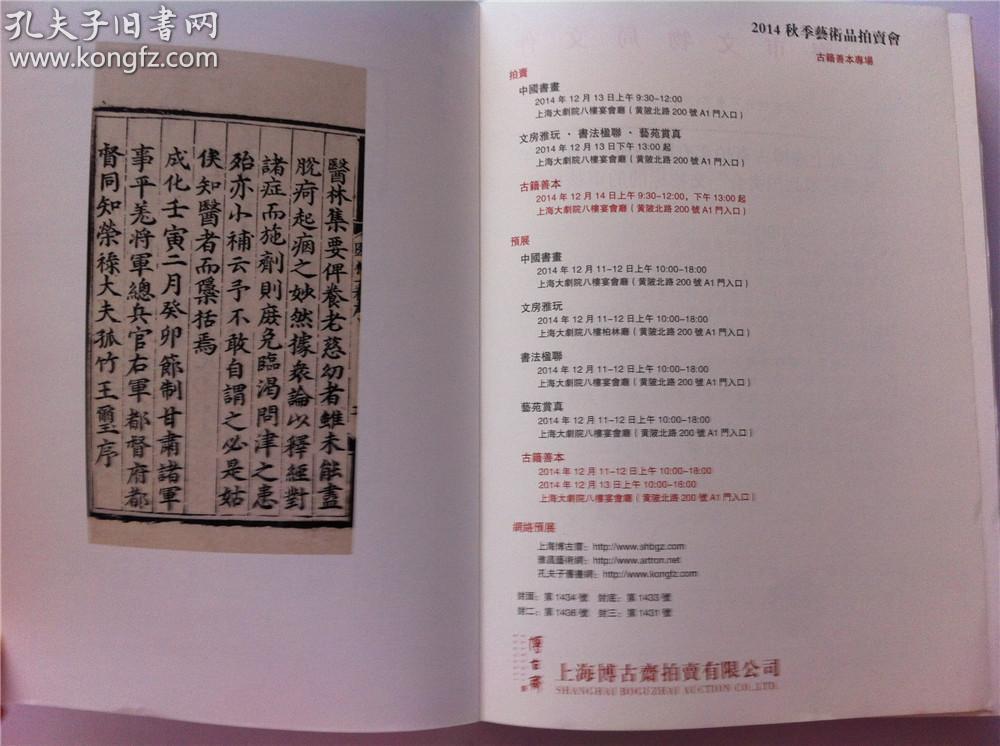 孔夫子旧书网
www.kongfz.com
醫林集要俾養老慈幼者雖未能盡
脫疴起痼之妙然據衆論以釋經對
諸症而施劑則庶免臨渴問津之患
殆亦小補云予不敢自謂之必是姑
俟知醫者而檃括焉
成化壬寅二月癸卯節制甘肅諸軍
事平羌將軍總兵官右軍都督府都
督同知榮祿大夫孤竹王璽序
2014 秋季藝術品拍賣會
古籍善本專場
拍賣
中國書畫
2014 年 12 月 13 日上午 9:30-12:00
上海大劇院八樓宴會廳（黄陂北路 200 號 A1 門入口）
文房雅玩 · 書法楹聯 · 藝苑賞真
2014 年 12 月 13 日下午 13:00 起
上海大劇院八樓宴會廳（黄陂北路 200 號 A1 門入口）
古籍善本
2014 年 12 月 14 日上午 9:30-12:00，下午 13:00 起
上海大劇院八樓宴會廳（黄陂北路 200 號 A1 門入口）
預展
中國書畫
2014 年 12 月 11-12 日上午 10:00-18:00
上海大劇院八樓宴會廳（黄陂北路 200 號 A1 門入口）
文房雅玩
2014 年 12 月 11-12 日上午 10:00-18:00
上海大劇院八樓柏林廳（黄陂北路 200 號 A1 門入口）
書法楹聯
2014 年 12 月 11-12 日上午 10:00-18:00
上海大劇院八樓宴會廳（黄陂北路 200 號 A1 門入口）
藝苑賞真
2014 年 12 月 11-12 日上午 10:00-18:00
上海大劇院八樓宴會廳（黄陂北路 200 號 A1 門入口）
古籍善本
2014 年 12 月 11-12 日上午 10:00-18:00
2014 年 12 月 13 日上午 10:00-16:00
上海大劇院八樓宴會廳（黄陂北路 200 號 A1 門入口）
網絡預展
上海博古齋：http://www.shbgz.com
雅昌藝術網：http://www.artron.net
孔夫子舊書網：http://www.kongfz.com
封面：第 1434 號 封底：第 1433 號
封二：第 1436 號 封三：第 1431 號
博古齋
上海博古齋拍賣有限公司
SHANGHAI BOGUZHAI AUCTION CO.,LTD.